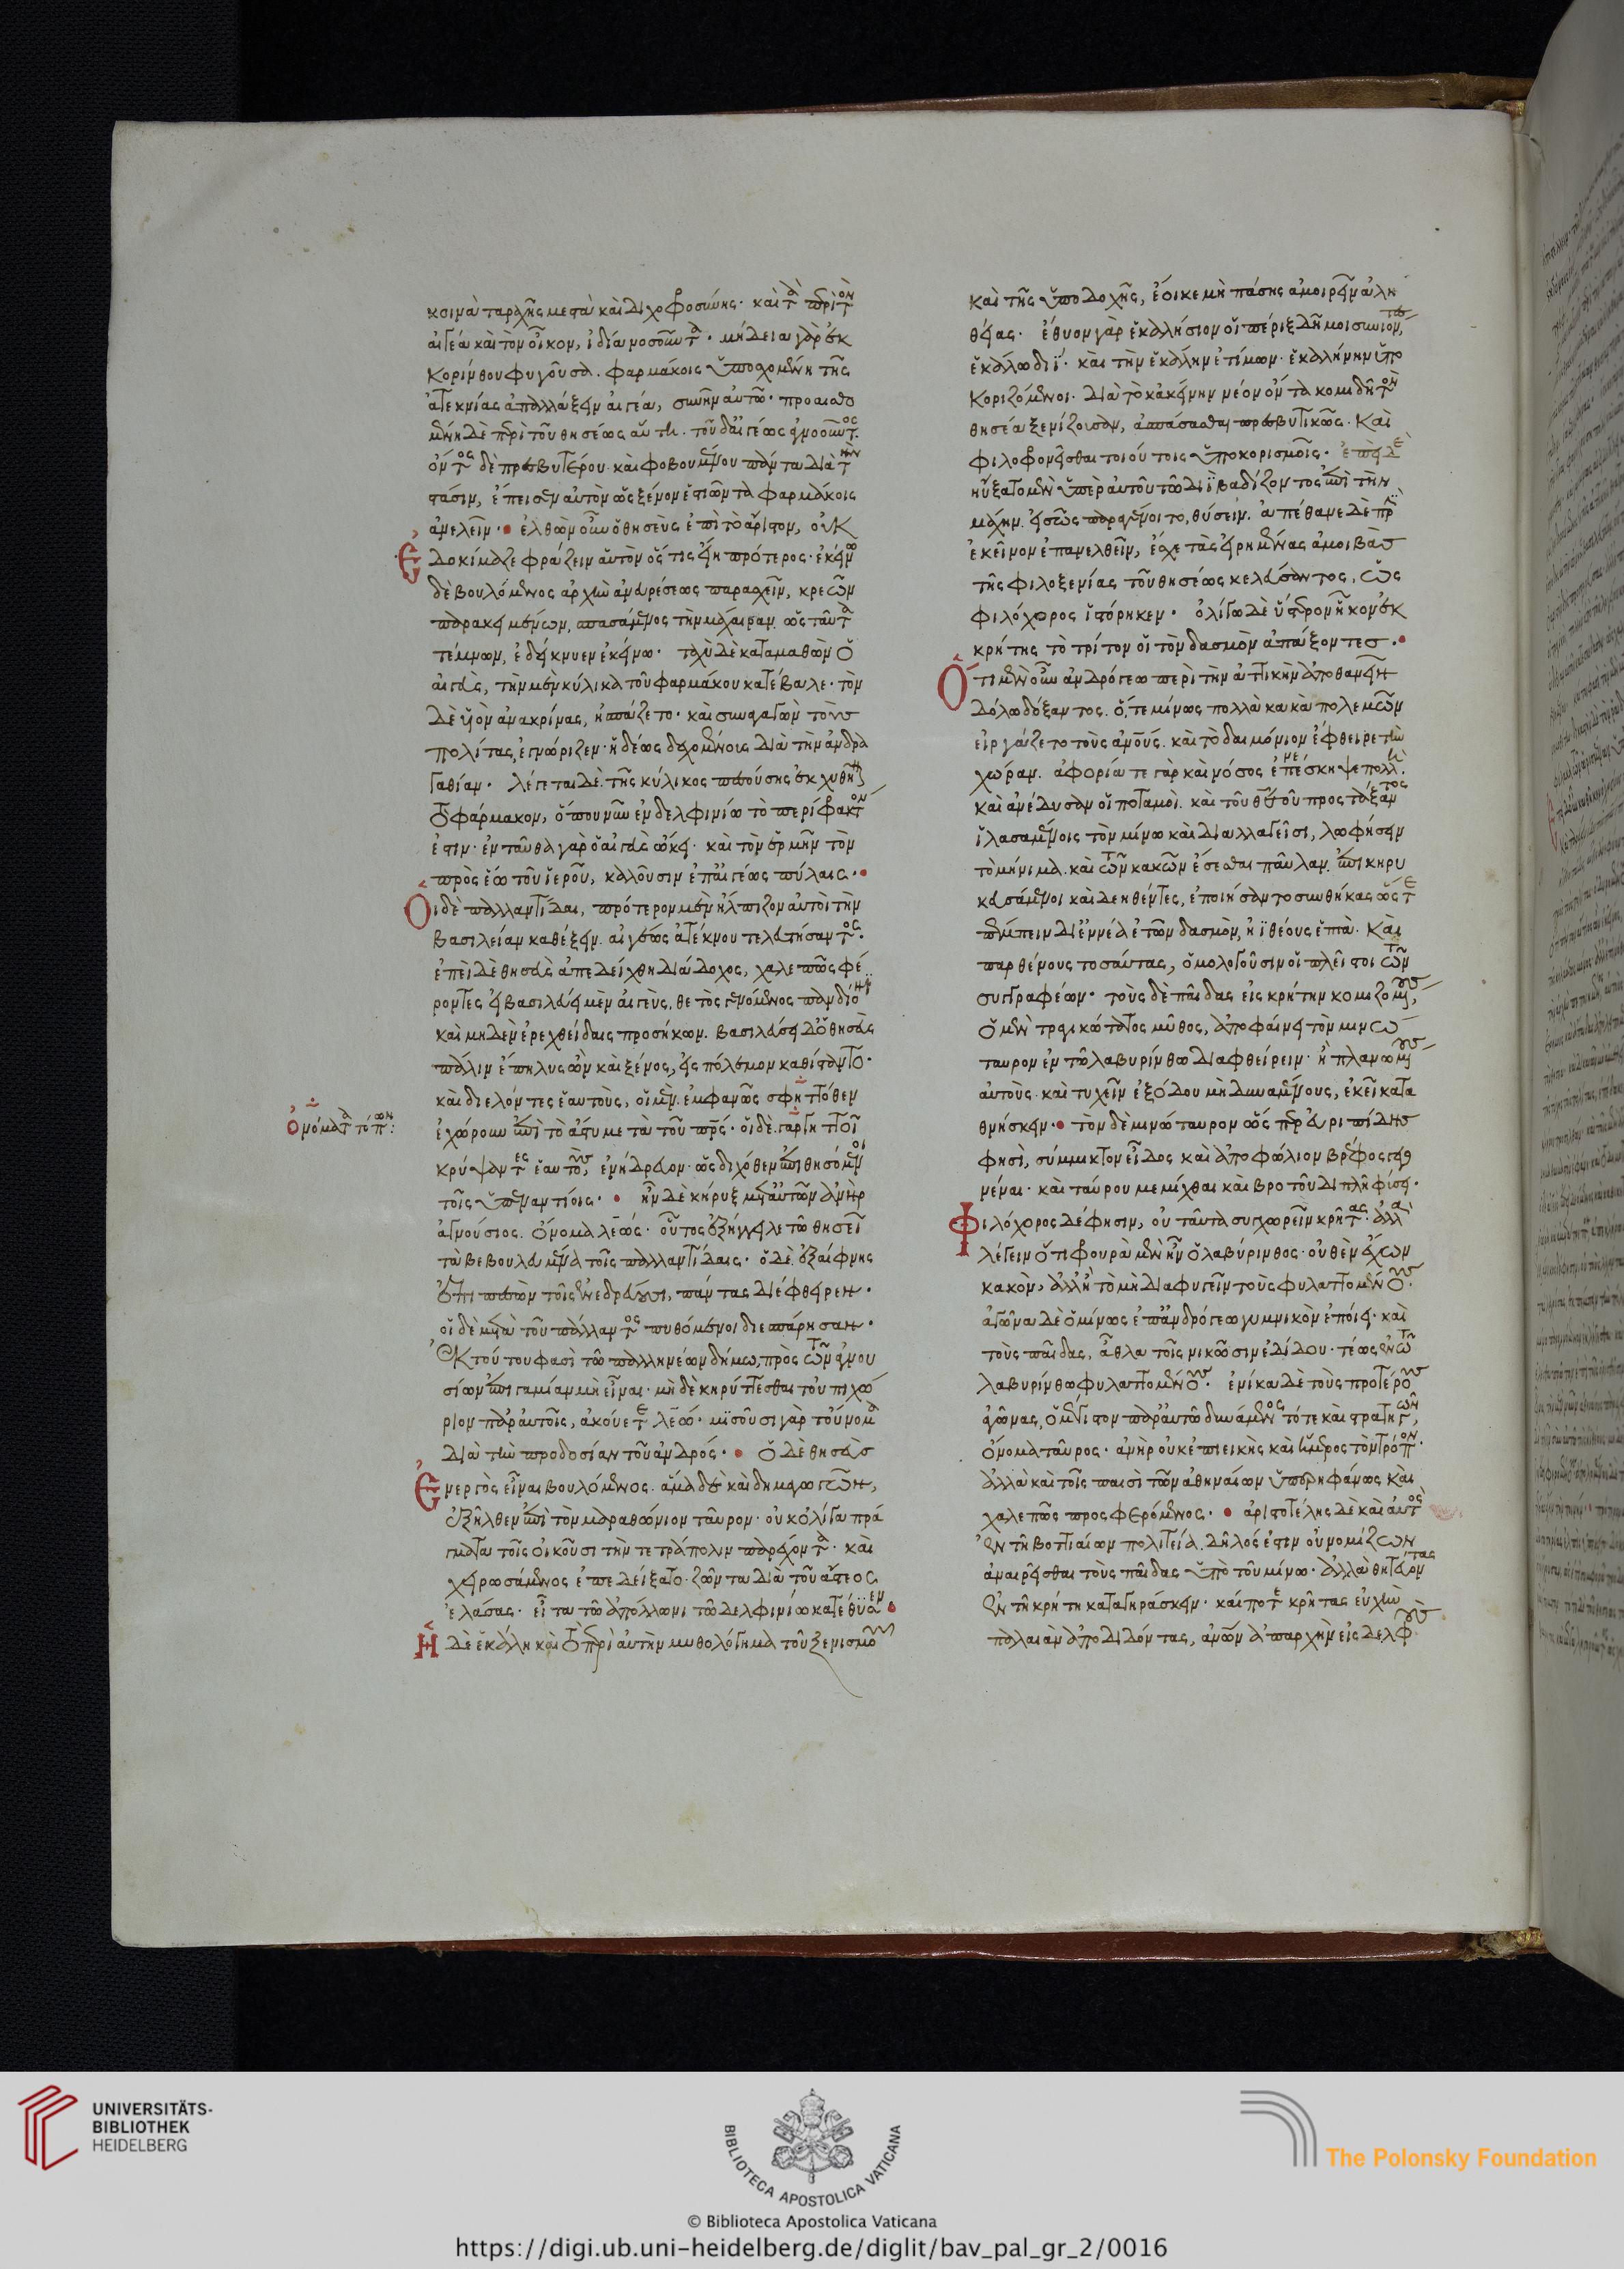 κσινὰ ταραχῆς μεστὰ καὶ διχοφροσύνης· καὶ τὰ περὶ τὸν
αἰγέα καὶ τὸν οἶκον, ἰδίᾳ νοσοῦντα· μήδεια γὰρ ἐκ
κορίνθου φυγοῦσα. φαρμάκοις ὑποσχομένη τῆς
ἀτεκνίας ἀπαλλάξειν αἰγέα, συνῆν αὐτῶ· προαισθο
μένη δὲ περὶ τοῦ θησέως αὕτη. τοῦ δ' αἰγέως ἀγνοοῦντος.
ὄντος δὲ πρεσβυτέρου· καὶ φοβουμένου πάντα διὰ τὴν
στάσιν, ἔπεισεν αὐτὸν ὡς ξένον ἑστιῶντα φαρμάκοις
ἀνελεῖν· ἐλθὼν οὖν ὁ θησεὺς ἐπὶ τὸ ἄριστον, οὐκ
ἐδοκίμαζε φράζειν αὑτὸν ὅστις εἴη πρότερος· ἐκείνω
δὲ βουλόμενος ἀρχὴν ἀνευρέσεως παρασχεῖν, κρεῶν
παρακειμένων, σπασάμενος τὴν μάχαιραν. ὡς ταύτῃ
τέμνων, ἐδείκνυεν ἐκείνω· ταχὺ δὲ καταμαθὼν ὁ
αἰγεὺς, τὴν μὲν κύλικα τοῦ φαρμάκου κατέβαλε· τὸν
δὲ υἱὸν ἀνακρίνας, ἠσπάζετο· καὶ συναγαγὼν τοὺς
πολίτας, ἐγνώριζεν· ἡδέως δεχομένους διὰ τὴν ἀνδρα
γαθίαν· λέγεται δὲ τῆς κύλικος πεσούσης ἐκχυθῆναι
τὸ φάρμακον, ὅπου νῦν ἐν δελφινίω τὸ περίφρακτον
ἐστιν· ἐνταῦθα γὰρ ὁ αἰγεὺς ὤκει· καὶ τὸν ἑρμῆν τὸν
πρὸς ἕω τοῦ ἱεροῦ, καλοῦσιν ἐπ' αἰγέως πύλαις·
Οἱ δὲ παλλαντίδαι, πρότερον μὲν ἤλπιζον αὐτοὶ τὴν
βασιλείαν καθέξειν. αἰγέως ἀτέκνου τελευτήσαντος.
ἐπεὶ δὲ θησεὺς ἀπεδείχθη διάδοχος, χαλεπῶς φέ
ροντες εἰ βασιλεύει μὲν αἰγεὺς, θετὸς γενόμενος πανδίονι
καὶ μηδὲν ἐρεχθείδαις προσήκων. βασιλεύσει δ' ὁ θησεὺς
πάλιν ἔπηλυς ὢν καὶ ξένος, εἰς πόλεμον καθίσταντο·
καὶ διελόντες ἑαυτοὺς, οἱ μὲν ἐμφανῶς σφηττόθεν
ὀνόματα τόπων:
ἐχώρουν ἐπὶ τὸ ἄστυ μετὰ τοῦ πατρός· οἱ δὲ γαργηττοῖ
κρύψαντες ἑαυτοὺς, ἐνήδρευον· ὡς διχόθεν ἐπιθησόμενοι
τοῖς ὑπεναντίοις· ἦν δὲ κήρυξ μετ' αὐτῶν ἀνὴρ
ἁγνούσιος. ὄνομα λεώς· οὗτος ἐξήγγειλε τῶ θησεῖ
τὰ βεβουλευμένα τοῖς παλλαντίδαις· ὁ δὲ ἐξαίφνης
ἐπιπεσὼν τοῖς ἐνεδρεύουσι, πάντας διέφθειρεν·
οἱ δὲ μετὰ τοῦ πάλλαντος πυθόμενοι διεσπάρησαν·
Ἐκ τούτου φασὶ τῶ παλληνέων δήμω, πρὸς τῶν ἁγνου
σίων ἐπιγαμίαν μὴ εἶναι· μὴ δὲ κηρύττεσθαι τοὐπιχώ
ριον παρ' αὐτοῖς, ἀκούετε λεώ· μισοῦσι γὰρ τοὔνομα
διὰ τὴν προδοσίαν τοῦ ἀνδρός· ὁ δὲ θησεὺς
ἐνεργὸς εἶναι βουλόμενος. ἅμα δὲ καὶ δημαγωγῶν,
ἐξῆλθεν ἐπὶ τὸν μαραθώνιον ταῦρον· οὐκ ὀλίγα πρά
γματα τοῖς οἰκοῦσι τὴν τετράπολιν παρέχοντα· καὶ
χειρωσάμενος ἐπεδείξατο· ζῶντα διὰ τοῦ ἄστεος
ἐλάσας· εἶτα τῶ ἀπόλλωνι τῶ δελφινίω κατέθυσεν
Ἡ δὲ ἑκάλη καὶ τὸ περὶ αὐτὴν μυθολόγημα τοῦ ξενισμοῦ
καὶ τῆς ὑποδοχῆς, ἔοικε μὴ πάσης ἀμοιρεῖν ἀλη
θείας· ἔθυον γὰρ ἑκαλήσιον οἱ πέριξ δῆμοι συνιόντες,
ἑκάλω διΐ· καὶ τὴν ἑκάλην ἐτίμων· ἑκαλίνην ὑπο
κοριζόμενοι· διὰ τὸ κἀκείνην νέον ὄντα κομιδῆ τὸν
θησέα ξενίζουσαν, ἀσπάσασθαι πρεσβυτικῶς· καὶ
φιλοφρονεῖσθαι τοιούτοις ὑποκορισμοῖς· ἐπεὶ δὲ
ηὔξατο μὲν ὑπὲρ αὐτοῦ τῶ διῒ βαδίζοντος ἐπὶ τὴν
μάχην. εἰ σῶς παραγένοιτο, θύσειν. ἀπέθανε δὲ πρὶν
ἐκεῖνον ἐπανελθεῖν, ἔσχε τὰς εἰρημένας ἀμοιβὰς
τῆς φιλοξενίας τοῦ θησέως κελεύσαντος, ὡς
φιλόχορος ἱστόρηκεν· ὀλίγω δὲ ὕστερον ἧκον ἐκ
κρήτης τὸ τρίτον οἱ τὸν δασμὸν ἀπάξοντες·
Ὅτι μὲν οὖν ἀνδρόγεω περὶ τὴν ἀττικὴν ἀποθανεῖν
δόλω δόξαντος. ὅ, τε μίνως πολλὰ κακὰ πολεμῶν
εἰργάζετο τοὺς ἀνθρώπους. καὶ τὸ δαιμόνιον ἔφθειρε τὴν
χώραν. ἀφορία τε γὰρ καὶ νόσος ἐπέσκηψε πολλὴ.
καὶ ἀνέδυσαν οἱ ποταμοί. καὶ τοῦ θεοῦ προστάξαντος
ἱλασαμένοις τὸν μίνω καὶ διαλλαγεῖσι, λωφήσειν
τὸ μήνιμα. καὶ τῶν κακῶν ἔσεσθαι παῦλαν. ἐπικηρυ
κευσάμενοι καὶ δεηθέντες, ἐποιήσαντο συνθήκας ὥστε
πέμπειν δι' ἐννέα ἐτῶν δασμὸν, ἠϊθέους ἑπτὰ· καὶ
παρθένους τοσαύτας, ὁμολογοῦσιν οἱ πλεῖστοι τῶν
συγγραφέων· τοὺς δὲ παῖδας εἰς κρήτην κομιζομένους,
ὁ μὲν τραγικώτατος μῦθος, ἀποφαίνει τὸν μινώ
ταυρον ἐν τῶ λαβυρίνθω διαφθείρειν· ἢ πλανωμένους
αὐτοὺς· καὶ τυχεῖν ἐξόδου μὴ δυναμένους, ἐκεῖ κατα
θνήσκειν· τὸν δὲ μινώταυρον ὥσπερ εὐριπίδης
φησὶ, σύμμικτον εἶδος καὶ ἀποφώλιον βρέφος γεγο
νέναι· καὶ ταύρου μεμίχθαι καὶ βροτοῦ διπλῆ φύσει·
Φιλόχορος δέ φησιν, οὐ ταῦτα συγχωρεῖν κρῆτας· ἀλλὰ
λέγειν ὅτι φρουρὰ μὲν ἦν ὁ λαβύρινθος· οὐθὲν ἔχων
κακὸν, ἀλλ' ἢ τὸ μὴ διαφυγεῖν τοὺς φυλαττομένους.
ἀγῶνα δὲ ὁ μίνως ἐπ' ἀνδρόγεω γυμνικὸν ἐποίει· καὶ
τοὺς παῖδας, ἆθλα τοῖς νικῶσιν ἐδίδου· τέως ἐν τῶ
λαβυρίνθω φυλαττομένους· ἐνίκα δὲ τοὺς προτέρους
ἀγῶνας, ὁ μέγιστον παρ' αὐτῶ δυνάμενος τότε καὶ στρατηγῶν,
ὄνομα ταῦρος· ἀνὴρ οὐκ ἐπιεικὴς καὶ ἥμερος τὸν τρόπον·
ἀλλὰ καὶ τοῖς παισὶ τῶν ἀθηναίων ὑπερηφάνως καὶ
χαλεπῶς προσφερόμενος· ἀριστοτέλης δὲ καὶ αὐτὸς
ἐν τῆ βοττιαίων πολιτεία. δῆλός ἐστιν οὐ νομίζων
ἀναιρεῖσθαι τοὺς παῖδας ὑπὸ τοῦ μίνω· ἀλλὰ θητεύοντας
ἐν τῆ κρήτη καταγηράσκειν· καί ποτε κρῆτας εὐχὴν
παλαιὰν ἀποδιδόντας, ἀνθρώπων ἀπαρχὴν εἰς δελφοὺς
UNIVERSITÄTS-
BIBLIOTHEK
HEIDELBERG
BIBLIOTECA APOSTOLICA VATICANA
The Polonsky Foundation
© Biblioteca Apostolica Vaticana
https://digi.ub.uni-heidelberg.de/diglit/bav_pal_gr_2/0016